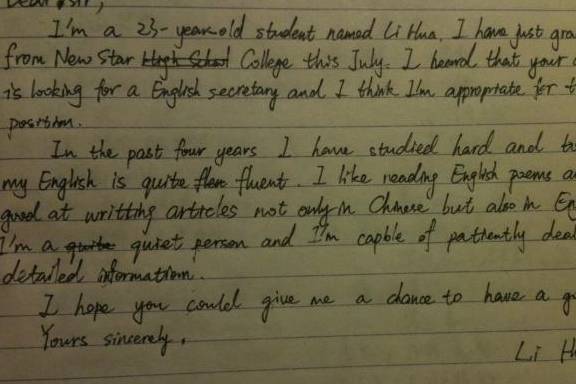 Dear sir,
I'm a 23-year-old student named Li Hua. I have just
from New Star High School College this July. I heard that your
is looking for a English secretary and I think I'm appropriate for
position.
In the past four years I have studied hard and
my English is quite fluent. I like reading English poems
good at writting articles not only in Chinese but also in
I'm a quite quiet person and I'm capble of patiently
detailed information.
I hope you could give me a chance to have a
Yours sincerely,
Li